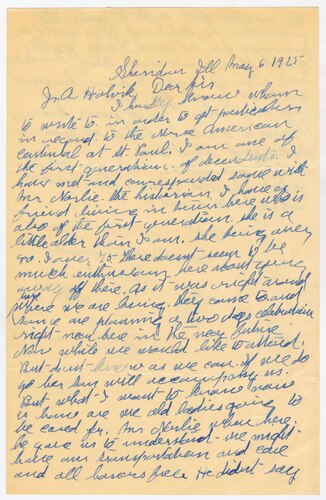 Sheridan Ill May 6 1925
J. A. Holvik, Dear Sir
I hardly know whom
to write to in order to get particulars
in regard to the Norse American
centinal at St Paul. I am one of
the first generation of decendents. I
have met and corresponded some with
Mr Norlie. the historian. I have a
friend living in here who is
also of the first generation she is a
little older than I am. she being over
70. I over 75 There doesnt seem to be
much enthusiasm here about going
away off there. As it was right around
here
where we are living they came to and
some are planning a two days celebration
right near here in the near future
Now while we would like to attend,
But dont know as we can. if we do
go her son will accompany us.
But what I want to know now
is how are we old ladies going to
be cared for. Mr Norlie when here
he gave us to understand we might
have our transportation and care
and all honors free He didnt say